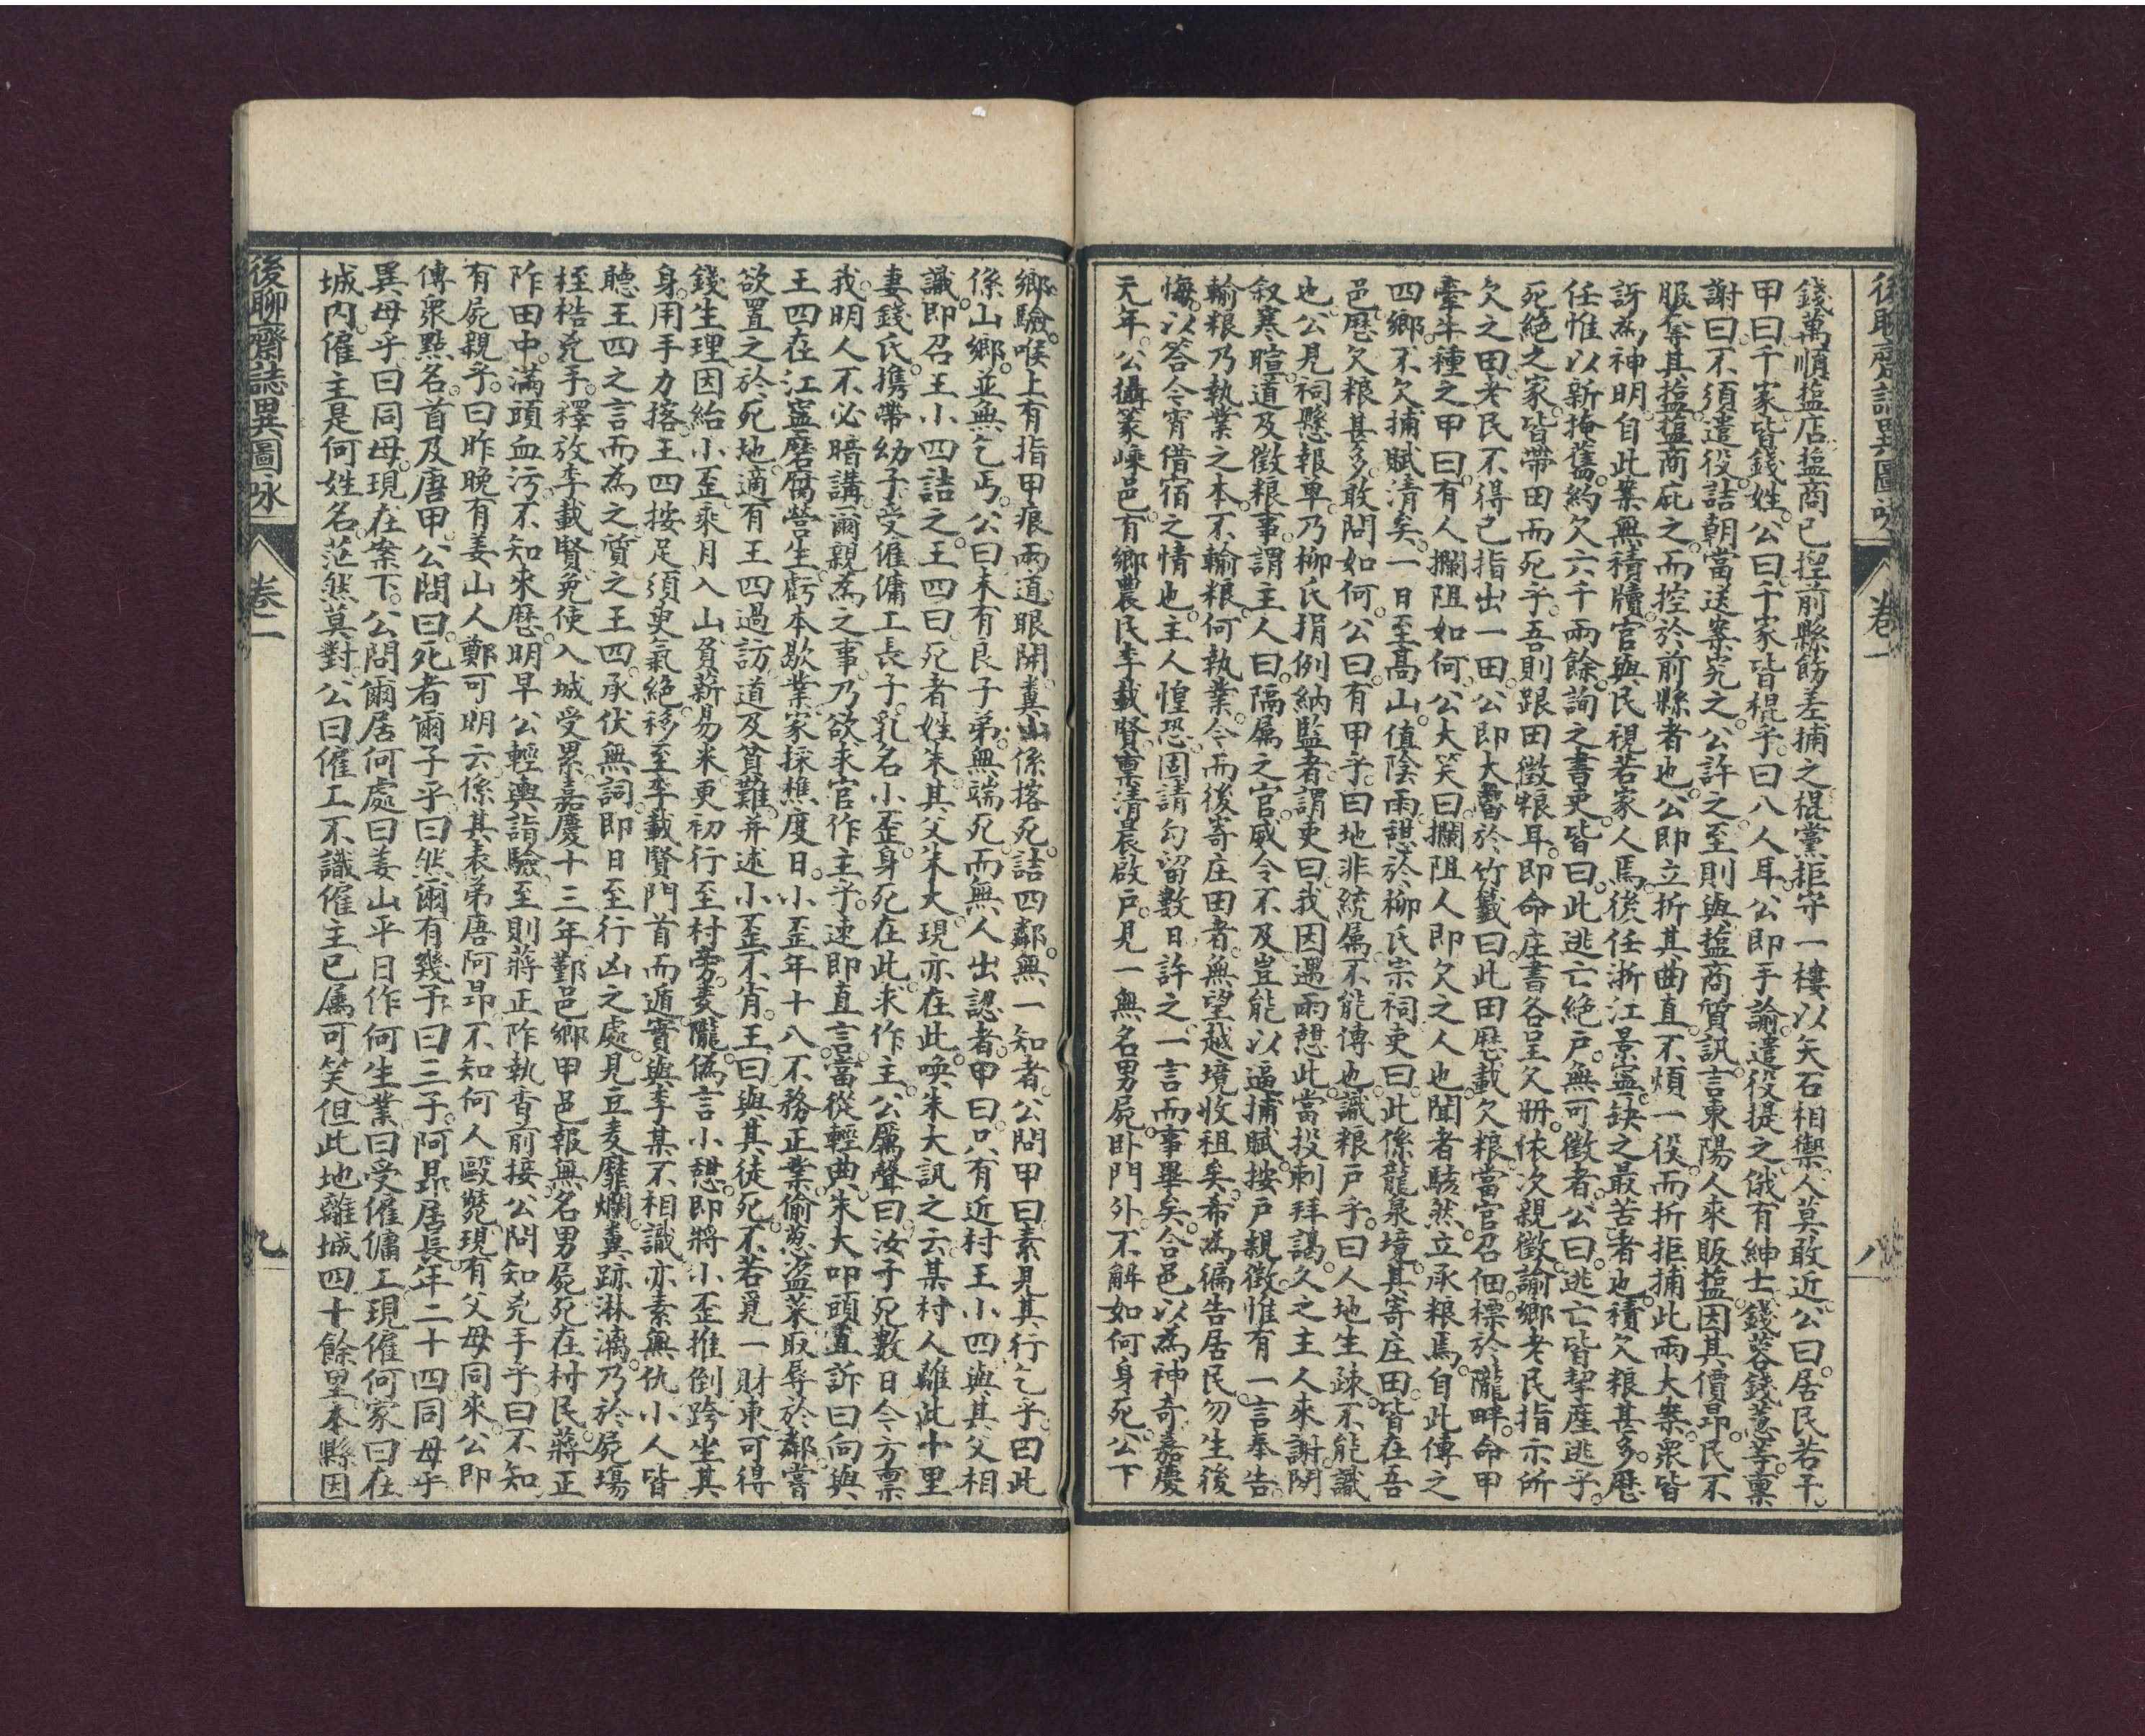 後聊齋誌異圖咏 卷一 八
錢萬順塩店塩商已控前縣飭差捕之棍黨拒守一樓以矢石相禦人莫敢近公曰居民若干
甲曰千家皆錢姓公曰千家皆棍乎曰八人耳公即手諭遣役提之俄有紳士錢蓉錢蕙等稟
謝曰不須遣役詰朝當送案究之公許之至則與塩商質訊言東陽人來販塩因其價昂民不
服奪其塩塩商庇之而控於前縣者也公即立折其曲直不煩一役而折拒捕此兩大案衆皆
訝為神明自此案無積牘官與民視若家人焉後任浙江景寧缺之最苦者也積欠粮甚多歷
任惟以新掩舊約欠六千兩餘詢之書吏皆曰此逃亡絕戶無可徵者公曰逃亡皆挈產逃乎
死絕之家皆帶田而死乎吾則跟田徵粮耳即命庄書各呈欠冊依次親徵諭鄉老民指示所
欠之田老民不得已指出一田公即大書於竹籤曰此田歷載欠粮當官召佃標於隴畔命甲
牽牛種之甲曰有人攔阻如何公大笑曰攔阻人即欠之人也聞者駭然立承粮焉自此傳之
四鄉不欠捕賦清矣一日至高山值陰雨憇於柳氏宗祠吏曰此係龍泉境其寄庄田皆在吾
邑歷欠粮甚多敢問如何公曰有甲乎曰地非統属不能傳也識粮戶乎曰人地生疎不能識
也公見祠懸報單乃柳氏捐例納監者謂吏曰我因遇雨憇此當投刺拜謁久之主人來謝開
叙寒暄道及徵粮事謂主人曰隔属之官威令不及豈能以逼捕賦按戶親徵惟有一言奉告
輸粮乃執業之本不輸粮何執業今而後寄庄田者無望越境收租矣希為徧告居民勿生後
悔以答今宵借宿之情也主人惶恐固請勾留數日許之一言而事畢矣合邑以為神奇嘉慶
元年公攝篆嵊邑有鄉農民李載賢稟清晨啟戶見一無名男屍卧門外不解如何身死公下
鄉驗喉上有指甲痕兩道眼開糞出係掐死詰四鄰無一知者公問甲曰素見其行乞乎曰此
係山鄉並無乞丐公曰未有良子弟無端死而無人出認者甲曰只有近村王小四與其父相
識即召王小四詰之王四曰死者姓朱其父朱大現亦在此喚朱大訊之云某村人離此十里
妻錢氏攜帶幼子受僱傭工長子乳名小歪身死在此求作主公厲聲曰汝子死數日今方稟
我明人不必暗講爾親為之事乃欲求官作主乎速即直言當從輕典朱大叩頭直訴曰向與
王四在江寧磨腐營生虧本歇業家採樵度日小歪年十八不務正業偷葱盗菜取辱於鄰嘗
欲置之於死地適有王四過訪道及貧難并述小歪不肖王曰與其徒死不若覓一財東可得
錢生理因紿小歪乘月入山負薪易米更初行至村旁麦隴偽言小憇即將小歪推倒跨坐其
身用手力掐王四按足須臾氣絕移至李載賢門首而遁實與李某不相識亦素無仇小人皆
聽王四之言而為之質之王四承伏無詞即日至行凶之處見豆麦靡爛糞跡淋漓乃於屍塲
桎梏兇手釋放李載賢免使入城受累嘉慶十三年鄞邑鄉甲邑報無名男屍死在村民蔣正
阼田中滿頭血污不知來歷明早公輕輿詣驗至則蔣正阼執香前接公問知兇手乎曰不知
有屍親乎曰昨晚有姜山人鄭可明云係其表弟唐阿昂不知何人毆斃現有父母同來公即
傳衆點名首及唐甲公問曰死者爾子乎曰然爾有幾子曰三子阿昂居長年二十四同母乎
異母乎曰同母現在案下公問爾居何處曰姜山平日作何生業曰受僱傭工現僱何家曰在
城内僱主是何姓名茫然莫對公曰僱工不識僱主已属可笑但此地離城四十餘里本縣因
後聊齋誌異圖咏 卷二 九